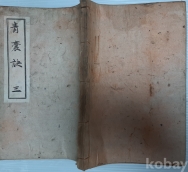 青囊訣 三
kobay